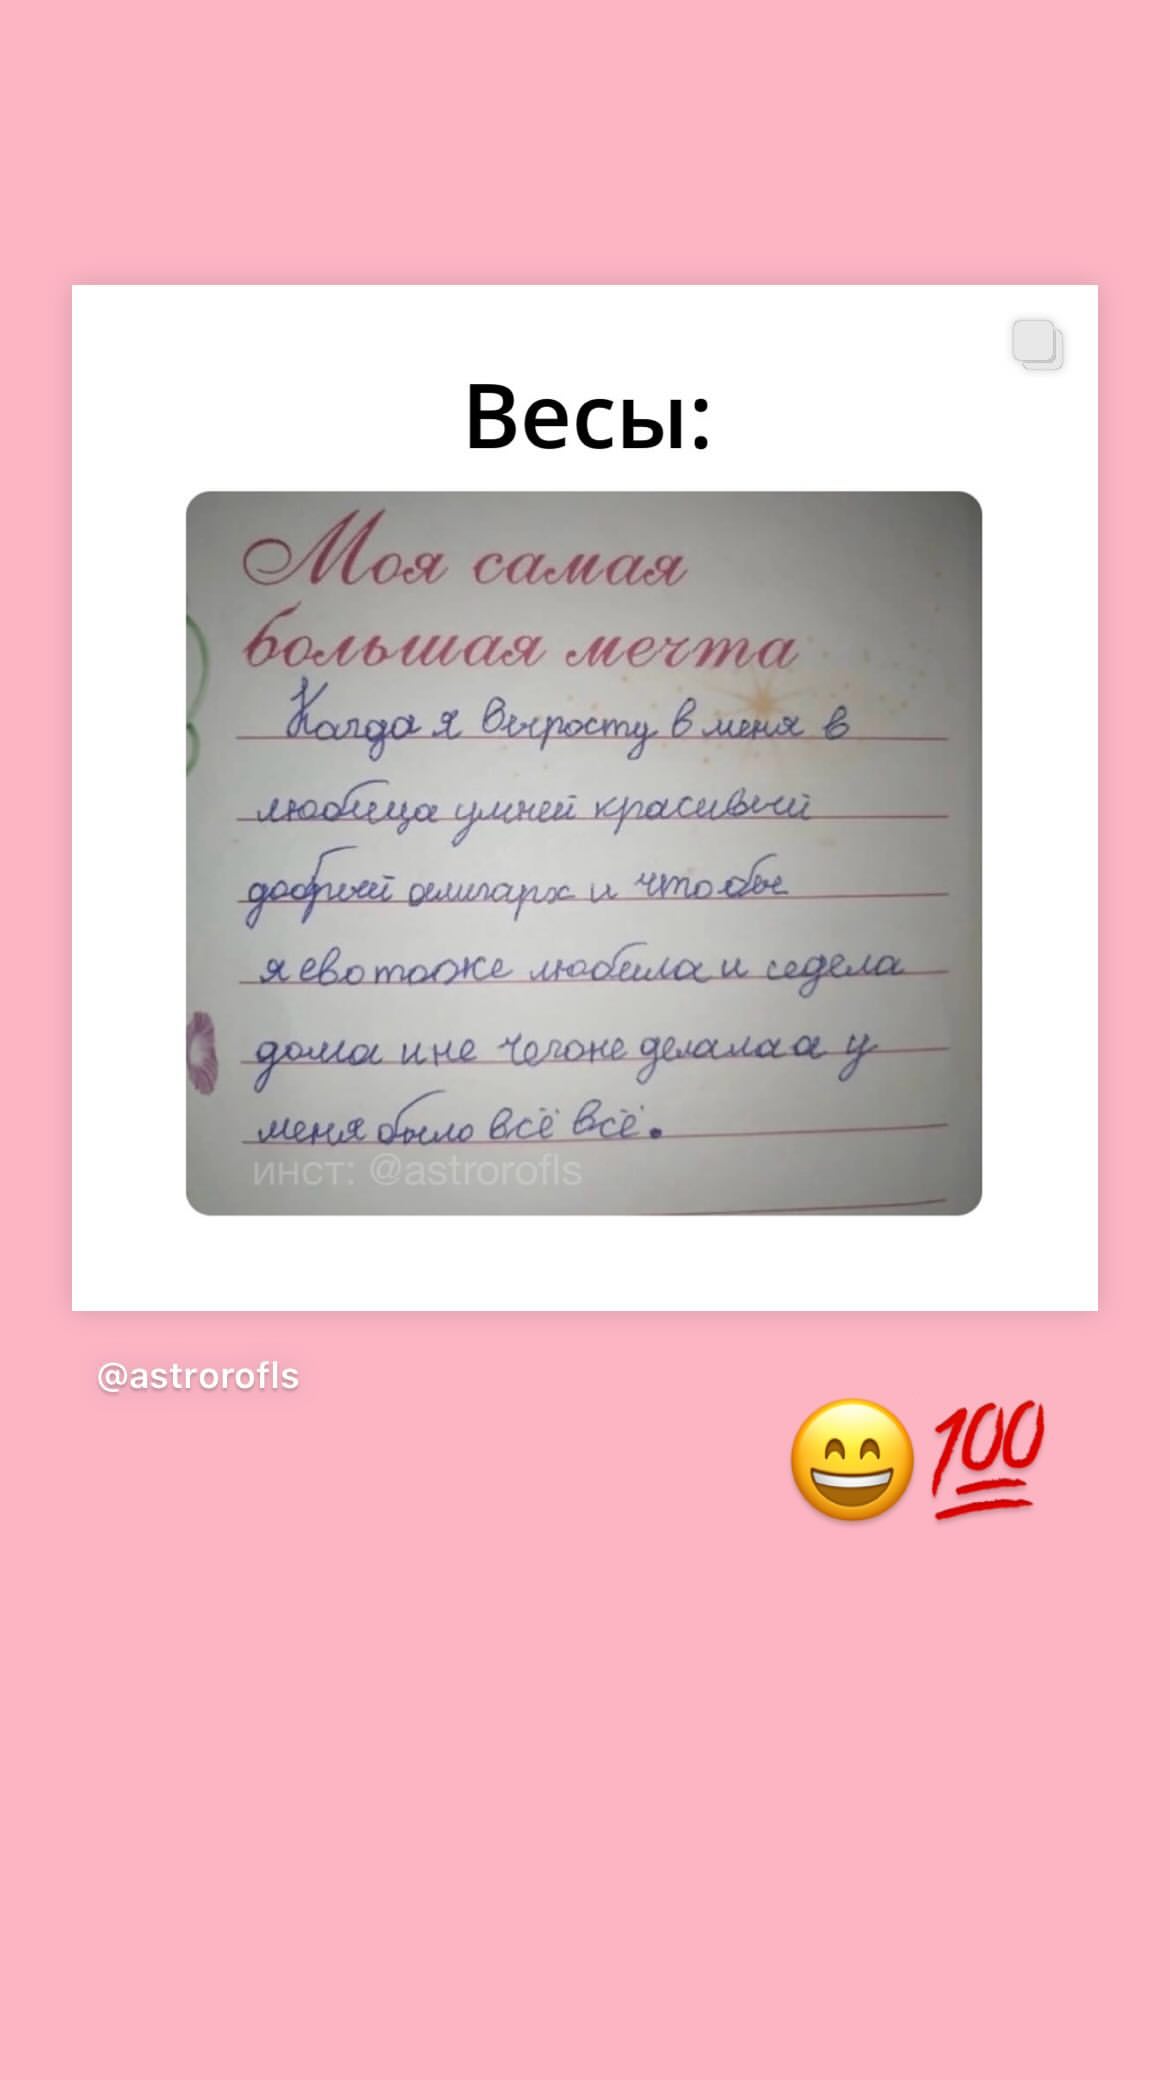 Весы:
Моя самая
большая мечта
Кагда я выросту в меня в
любица умней красивый
добрый олигарх и что обы
я ево тоже любила и седела
дома и не чегоне делала а у
меня было всё всё.
инст: @astrorofls
@astrorofls
😄💯